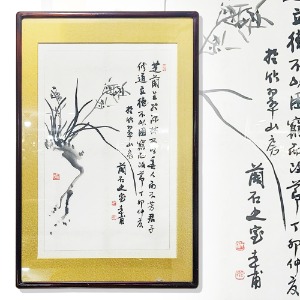 芝蘭生於深林不以無人而不芳君子
修道立德不以困窮而改節丁卯仲夏
於竹翠山房
蘭石之室
芳君子
窮而改節丁卯仲夏
於竹翠山房
蘭石之室